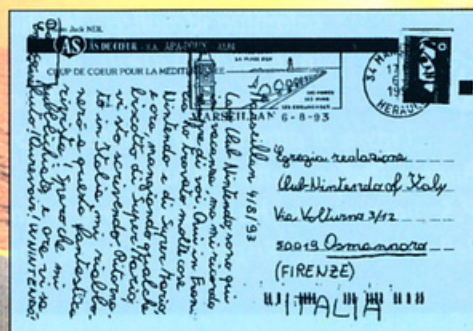 Jack NEIL
AS
AS DE COEUR - S.A. APA-POUX ALBI
COUP DE COEUR POUR LA MÉDITERRANÉE
MARSEILLAN 6-8-93
34 MA
HERAULT
Marseillan 4/8/93
Caro Club Nintendo, sono qui
in vacanza ma mi ricordo
sempre di voi. Qui in Fran-
cia ho trovato molte cose
Nintendo e di Super Mario,
e ora, mangiando qualche
biscotto di Super Mario,
vi sto scrivendo. Ritorna-
to in Italia, mi riabbo-
nerò a questa fantastica
rivista! Spero che mi
pubblichiate e ora vi sa-
luto! Aurevoir! W NINTENDO!
Egregia redazione
Club Nintendo of Italy
Via Volturno 3/12
50019 Osmannoro
(FIRENZE)
ITALIA